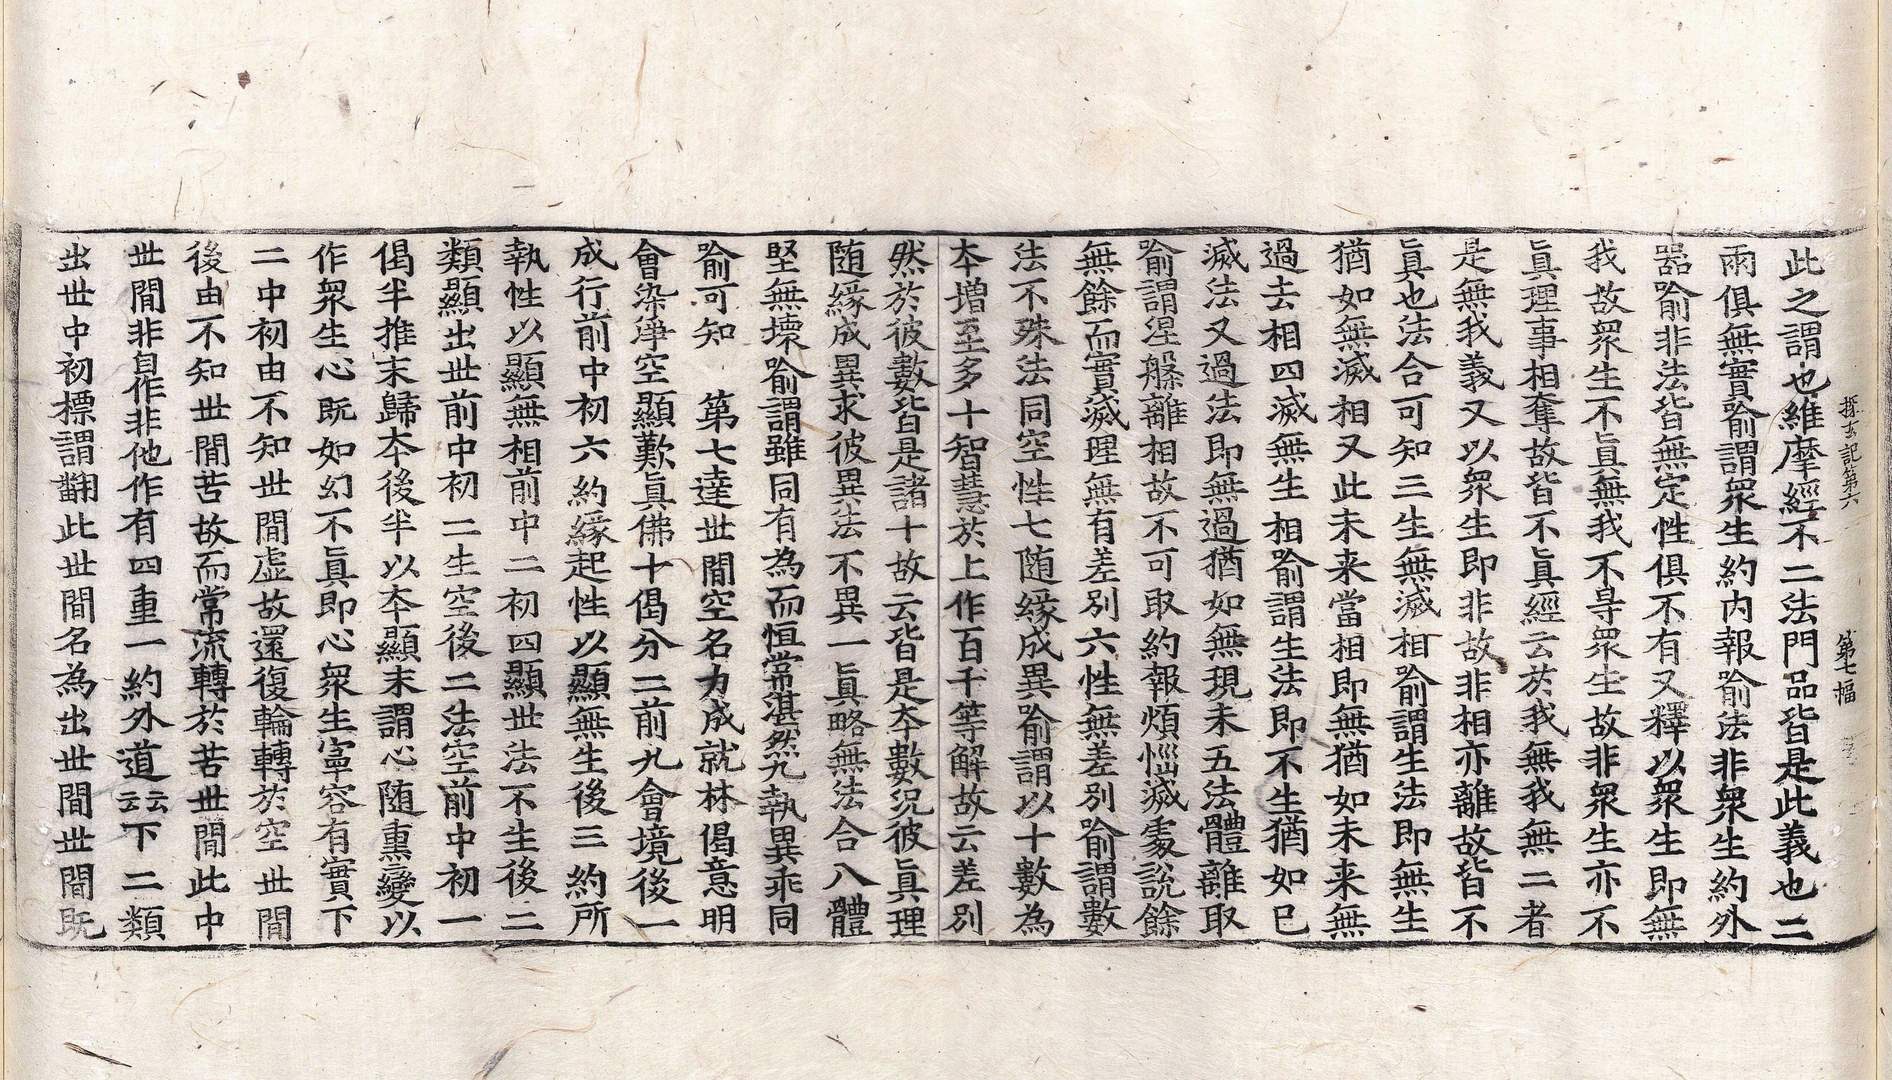 探玄記第六　第七幅
此之謂也維摩經不二法門品皆是此義也二
兩俱無實喻謂衆生約內報喻法非衆生約外
器喻非法皆無定性俱不有又釋以衆生即無
我故衆生不真無我不㝵衆生故非衆生亦不
真理事相奪故皆不真經云於我無我無二者
是無我義又以衆生即非故非相亦離故皆不
真也法合可知三生無滅相喻謂生法即無生
猶如無滅相又此未来當相即無猶如未来無
過去相四滅無生相喻謂生法即不生猶如已
滅法又過法即無過猶如無現未五法體離取
喻謂涅槃離相故不可取約報煩惱滅處說餘
無餘而實滅理無有差別六性無差別喻謂數
法不殊法同空性七随緣成異喻謂以十數為
本增至多十智慧於上作百千等解故云差別
然於彼數皆是諸十故云皆是本數況彼真理
随緣成異求彼異法不異一真略無法合八體
堅無壞喻謂雖同有為而恒常湛然九執異乖同
喻可知　第七達世間空名力成就林偈意明
會染淨空顯歎真佛十偈分二前九會境後一
成行前中初六約緣起性以顯無生後三約所
執性以顯無相前中二初四顯世法不生後二
類顯出世前中初二生空後二法空前中初一
偈半推末歸本後半以本顯末謂心随熏變以
作衆生心既如幻不真即心衆生寧容有實下
二中初由不知世間虛故還復輪轉於空世間
後由不知世間苦故而常流轉於苦世間此中
世間非自作非他作有四重一約外道云云下二類
出世中初標謂翻此世間名為出世間世間既